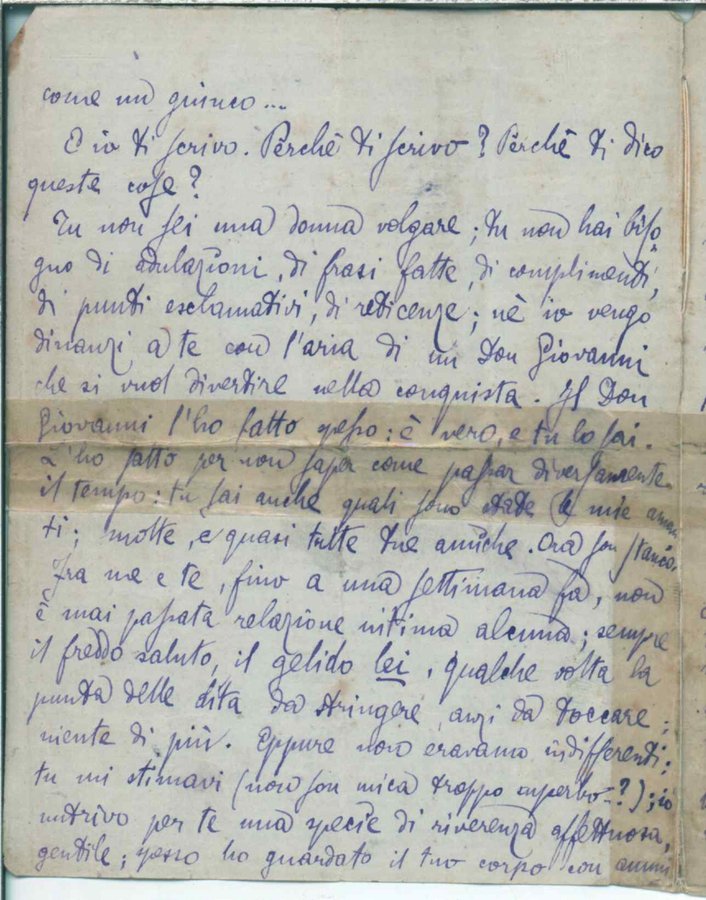 come un giunco...
E io ti scrivo. Perchè ti scrivo? Perchè ti dico
queste cose?
Tu non sei una donna volgare; tu non hai biso=
gno di adulazioni, di frasi fatte, di complimenti,
di punti esclamativi, di reticenze; nè io vengo
dinanzi a te con l'aria di un Don Giovanni
che si vuol divertire nella conquista. Il Don
Giovanni l'ho fatto spesso: è vero, e tu lo sai.
L'ho fatto per non saper come passar diversamente
il tempo: tu sai anche quali sono state le mie aman
ti; molte, e quasi tutte tue amiche. Ora son stanco.
Fra me e te, fino a una settimana fa, non
è mai passata relazione intima alcuna; sempre
il freddo saluto, il gelido lei, qualche volta la
punta delle dita da stringere, anzi da toccare;
niente di più. Eppure non eravamo indifferenti:
tu mi stimavi (non son mica troppo superbo..?); io
nutrivo per te una specie di riverenza affettuosa,
gentile; spesso ho guardato il tuo corpo con ammi